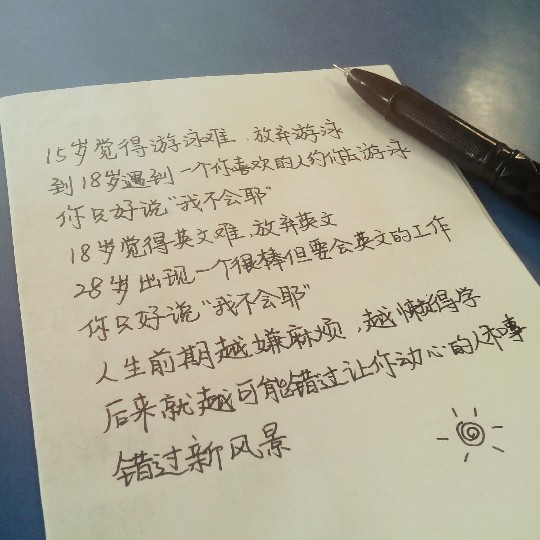 15岁觉得游泳难,放弃游泳
到18岁遇到一个你喜欢的人约你去游泳
你只好说“我不会耶”
18岁觉得英文难,放弃英文
28岁出现一个很棒但要会英文的工作
你只好说“我不会耶”
人生前期越嫌麻烦,越懒得学
后来就越可能错过让你动心的人和事
错过新风景